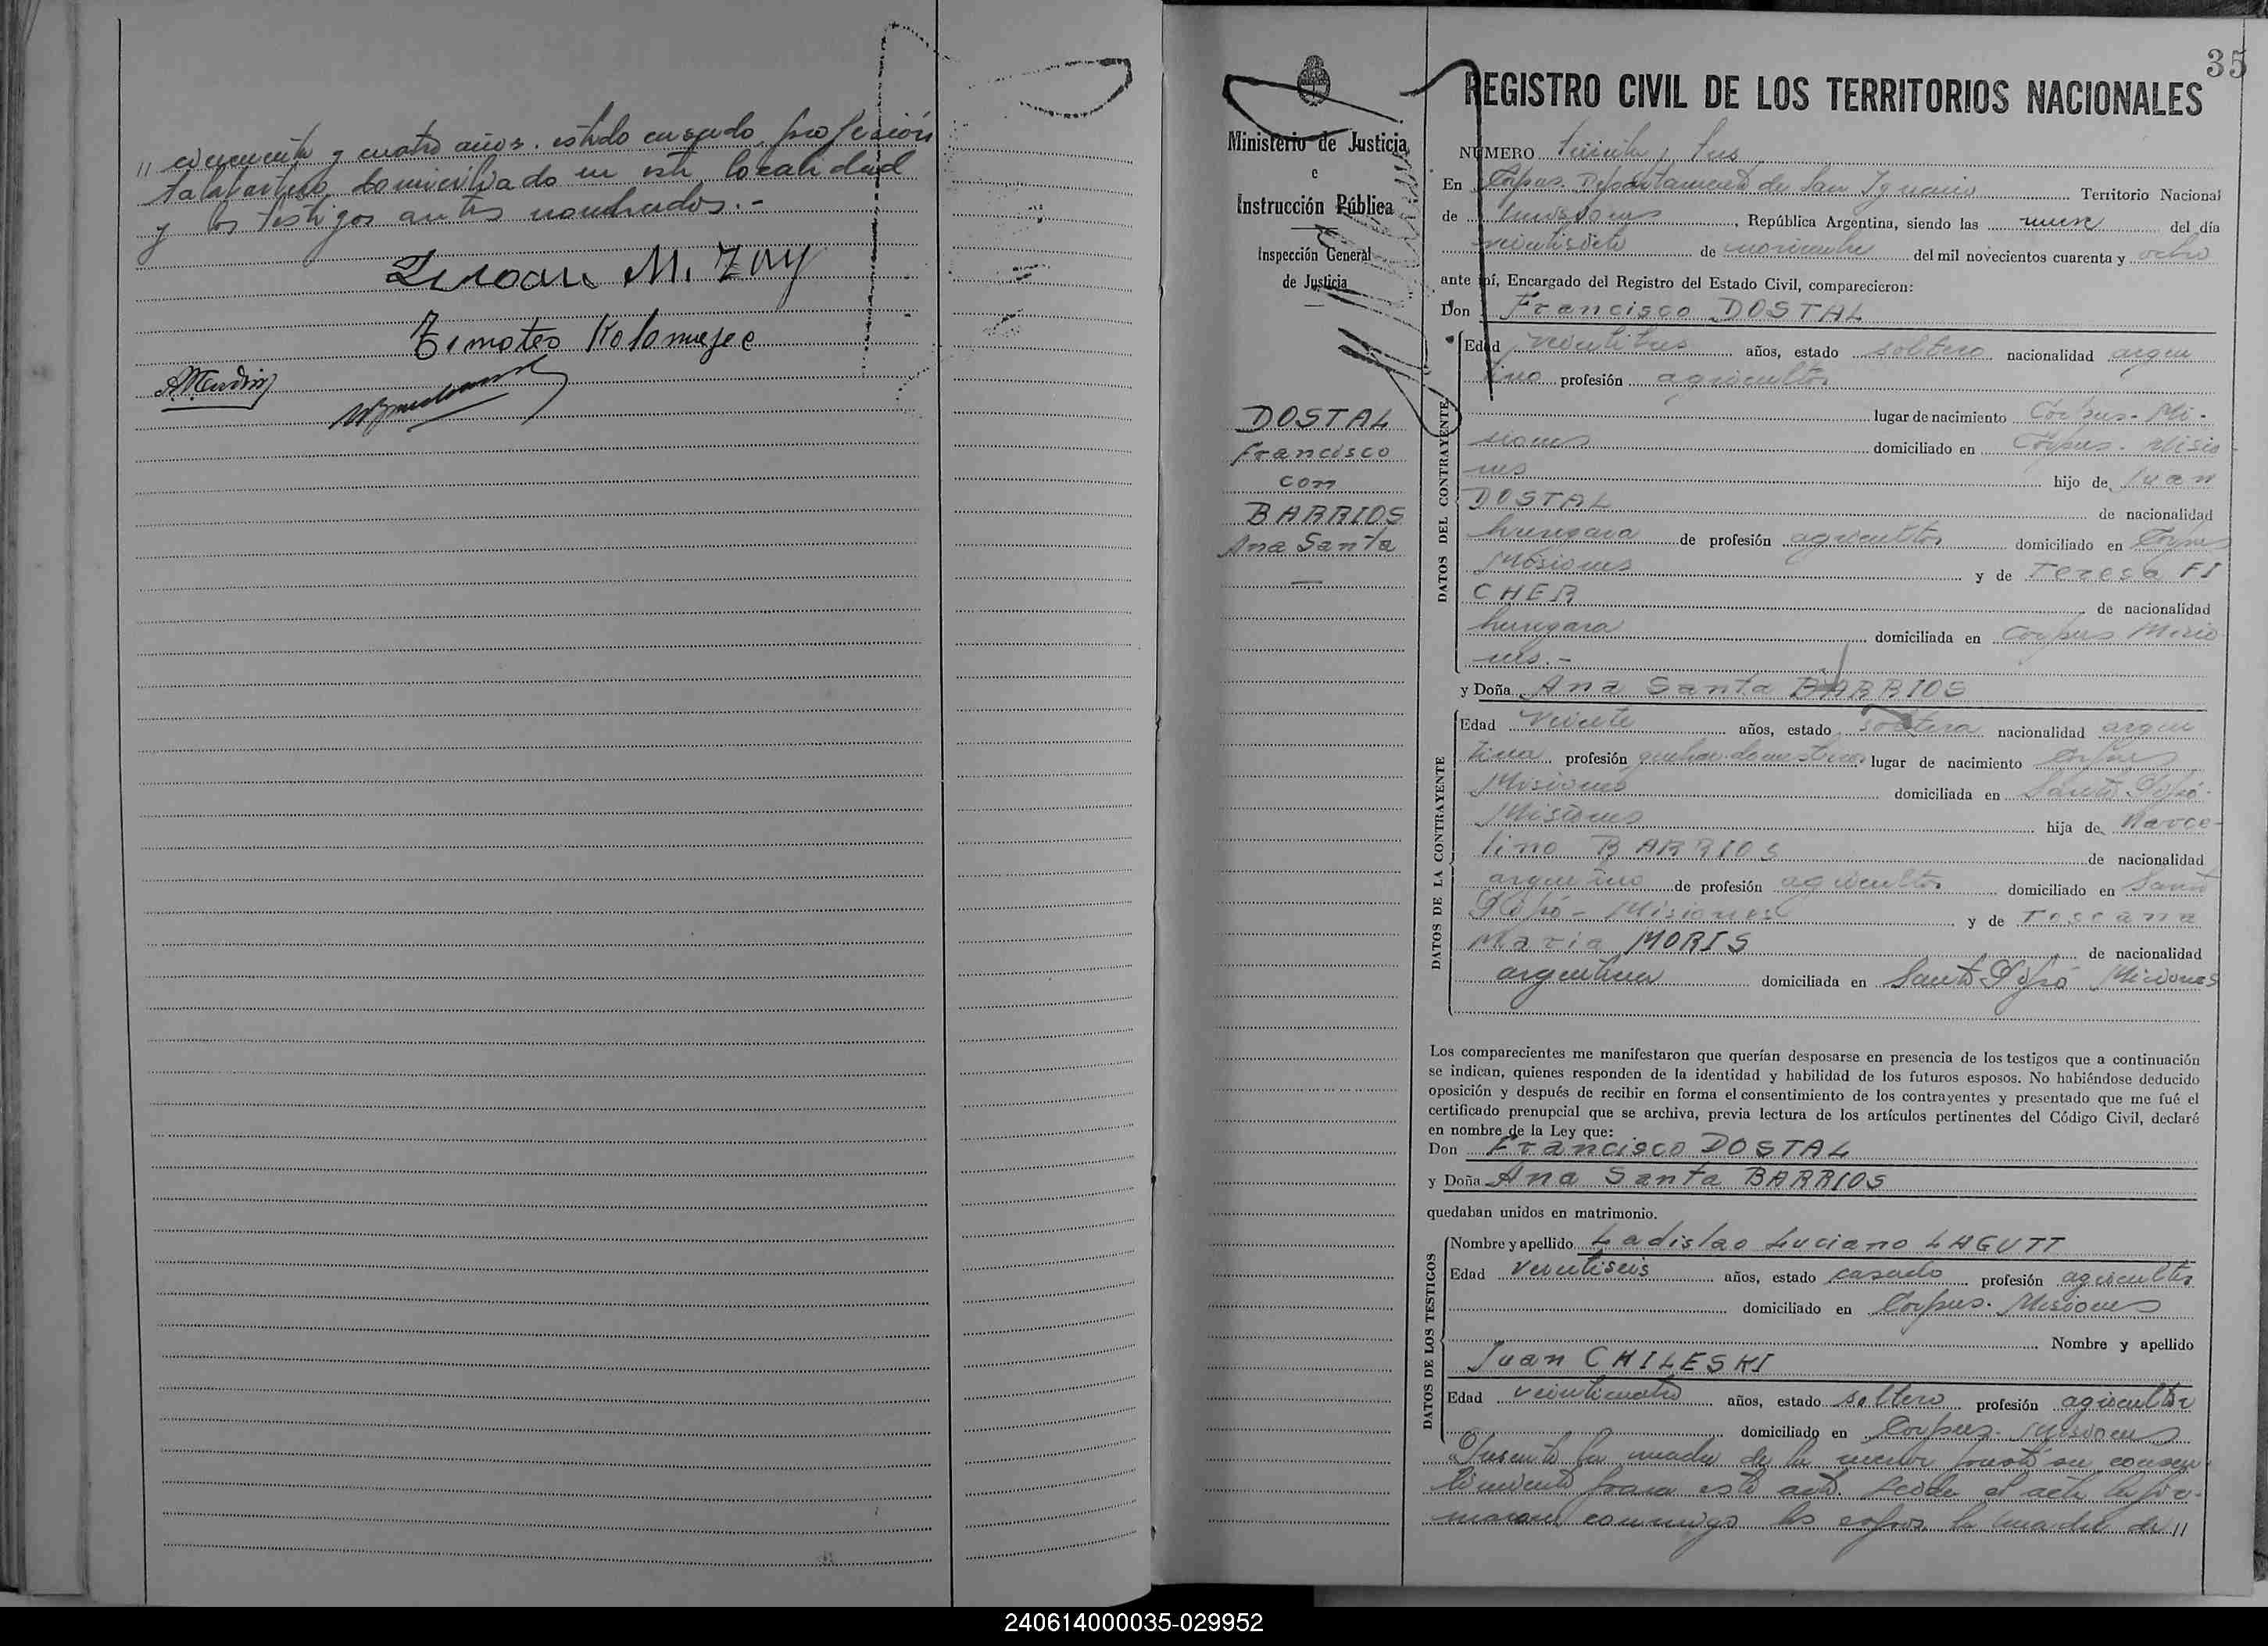 " cincuenta y cuatro años. estado casado, profesión
talabartero domiciliado en esta localidad
y los testigos antes nombrados.-
M. Zuy
Timoteo Kolomejec
35
REGISTRO CIVIL DE LOS TERRITORIOS NACIONALES
Ministerio de Justicia
e
Instrucción Pública
Inspección General
de Justicia
DOSTAL
Francisco
con
BARRIOS
Ana Santa
NÚMERO Treinta y tres
En Corpus. Departamento de San Ignacio Territorio Nacional
de Misiones, República Argentina, siendo las nueve del día
veintisiete de noviembre del mil novecientos cuarenta y ocho
ante mí, Encargado del Registro del Estado Civil, comparecieron:
Don Francisco DOSTAL
DATOS DEL CONTRAYENTE
Edad veintitres años, estado soltero nacionalidad argen
tino profesión agricultor
lugar de nacimiento Corpus- Mi-
siones domiciliado en Corpus- Misio
nes hijo de Juan
DOSTAL de nacionalidad
hungara de profesión agricultor domiciliado en Corpus
Misiones y de Teresa FI
CHER de nacionalidad
hungara domiciliada en Corpus Misio
nes.-
y Doña Ana Santa BARRIOS
DATOS DE LA CONTRAYENTE
Edad veinte años, estado soltera nacionalidad argen
tina profesión quehac. domesticos lugar de nacimiento Corpus
Misiones domiciliada en Santo Pipó-
Misiones hija de Marce-
lino BARRIOS de nacionalidad
argentino de profesión agricultor domiciliado en Santo
Pipó- Misiones y de Toscana
Maria MORIS de nacionalidad
argentina domiciliada en Santo Pipó Misiones
Los comparecientes me manifestaron que querían desposarse en presencia de los testigos que a continuación
se indican, quienes responden de la identidad y habilidad de los futuros esposos. No habiéndose deducido
oposición y después de recibir en forma el consentimiento de los contrayentes y presentado que me fué el
certificado prenupcial que se archiva, previa lectura de los artículos pertinentes del Código Civil, declaré
en nombre de la Ley que:
Don Francisco DOSTAL
y Doña Ana Santa BARRIOS
quedaban unidos en matrimonio.
DATOS DE LOS TESTIGOS
Nombre y apellido Ladislao Luciano LAGUTT
Edad veintiseis años, estado casado profesión agricultor
domiciliado en Corpus. Misiones
Nombre y apellido
Juan CHILESKI
Edad veinticuatro años, estado soltero profesión agricultor
domiciliado en Corpus- Misiones
Presente la madre de la menor prestó su consen
timiento para este acto. Leida el acta la fir-
maron conmigo los espos. la madre de "
240614000035-029952